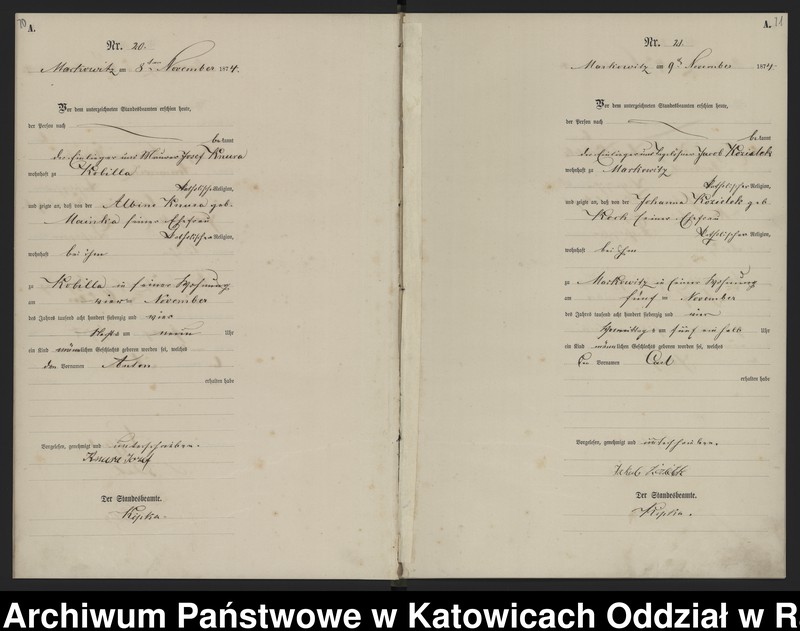 20
A.
Nr. 20.
Markowitz am 8ten November 1874.
Vor dem unterzeichneten Standesbeamten erschien heute,
der Person nach
bekannt
der Einlieger und Maurer Josef Knura
wohnhaft zu Kobilla
katholischer Religion,
und zeigte an, daß von der Albine Knura geb.
Mainka seiner Ehefrau
katholischer Religion,
wohnhaft bei ihm
zu Kobilla in seiner Wohnung
am vier November
des Jahres tausend acht hundert siebenzig und vier
Nachts um neun Uhr
ein Kind männlichen Geschlechts geboren worden sei, welches
den Vornamen Anton
erhalten habe
Vorgelesen, genehmigt und unterschrieben.
Knura Josef
Der Standesbeamte.
Kipka
A. 21
Nr. 21.
Markowitz am 9ten November 1874.
Vor dem unterzeichneten Standesbeamten erschien heute,
der Person nach
bekannt
der Einlieger und Tagelöhner Jacob Kozielek
wohnhaft zu Markowitz
katholischer Religion,
und zeigte an, daß von der Johanna Kozielek geb.
seiner Ehefrau
katholischer Religion,
wohnhaft bei ihm
zu Markowitz in seiner Wohnung
am fünf November
des Jahres tausend acht hundert siebenzig und vier
Vormittag um fünf ein halb Uhr
ein Kind männlichen Geschlechts geboren worden sei, welches
den Vornamen Carl
erhalten habe
Vorgelesen, genehmigt und unterschrieben.
Der Standesbeamte.
Kipka.
Archiwum Państwowe w Katowicach Oddział w R